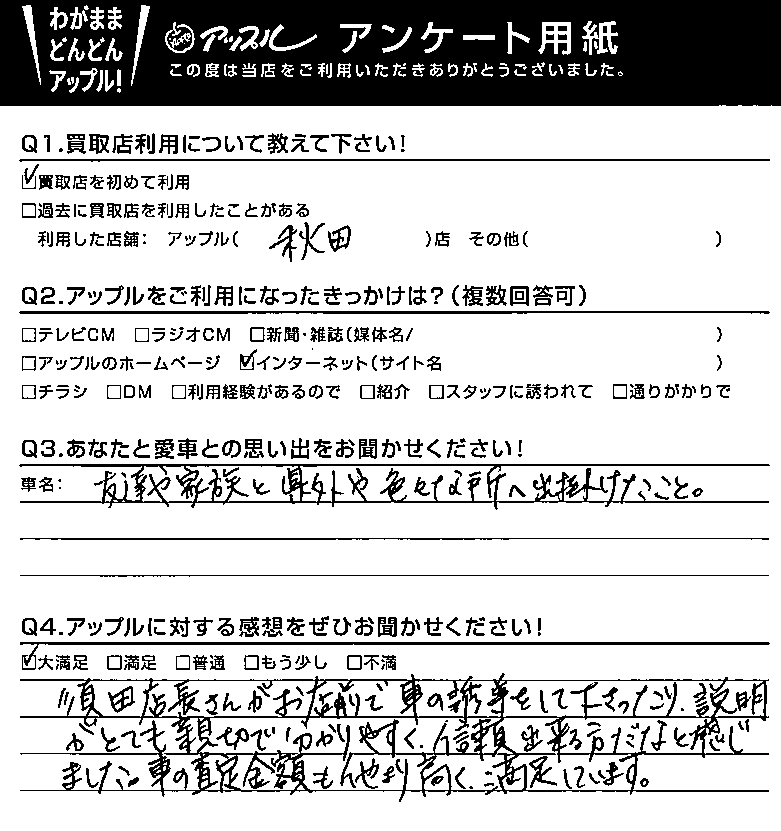 わがまま
どんどん
アップル!
アップル アンケート用紙
この度は当店をご利用いただきありがとうございました。
Q1.買取店利用について教えて下さい!
☑買取店を初めて利用
□過去に買取店を利用したことがある
利用した店舗: アップル( 秋田 )店 その他( )
Q2.アップルをご利用になったきっかけは?(複数回答可)
□テレビCM □ラジオCM □新聞・雑誌(媒体名/ )
□アップルのホームページ ☑インターネット(サイト名 )
□チラシ □DM □利用経験があるので □紹介 □スタッフに誘われて □通りがかりで
Q3.あなたと愛車との思い出をお聞かせください!
車名: 友達や家族と県外や色々な所へ出掛けたこと。
Q4.アップルに対する感想をぜひお聞かせください!
☑大満足 □満足 □普通 □もう少し □不満
須田店長さんがお店前で車の誘導をして下さったり、説明
がとても親切で分かりやすく、信頼出来る方だなと感じ
ました。車の査定金額も高く、満足しています。